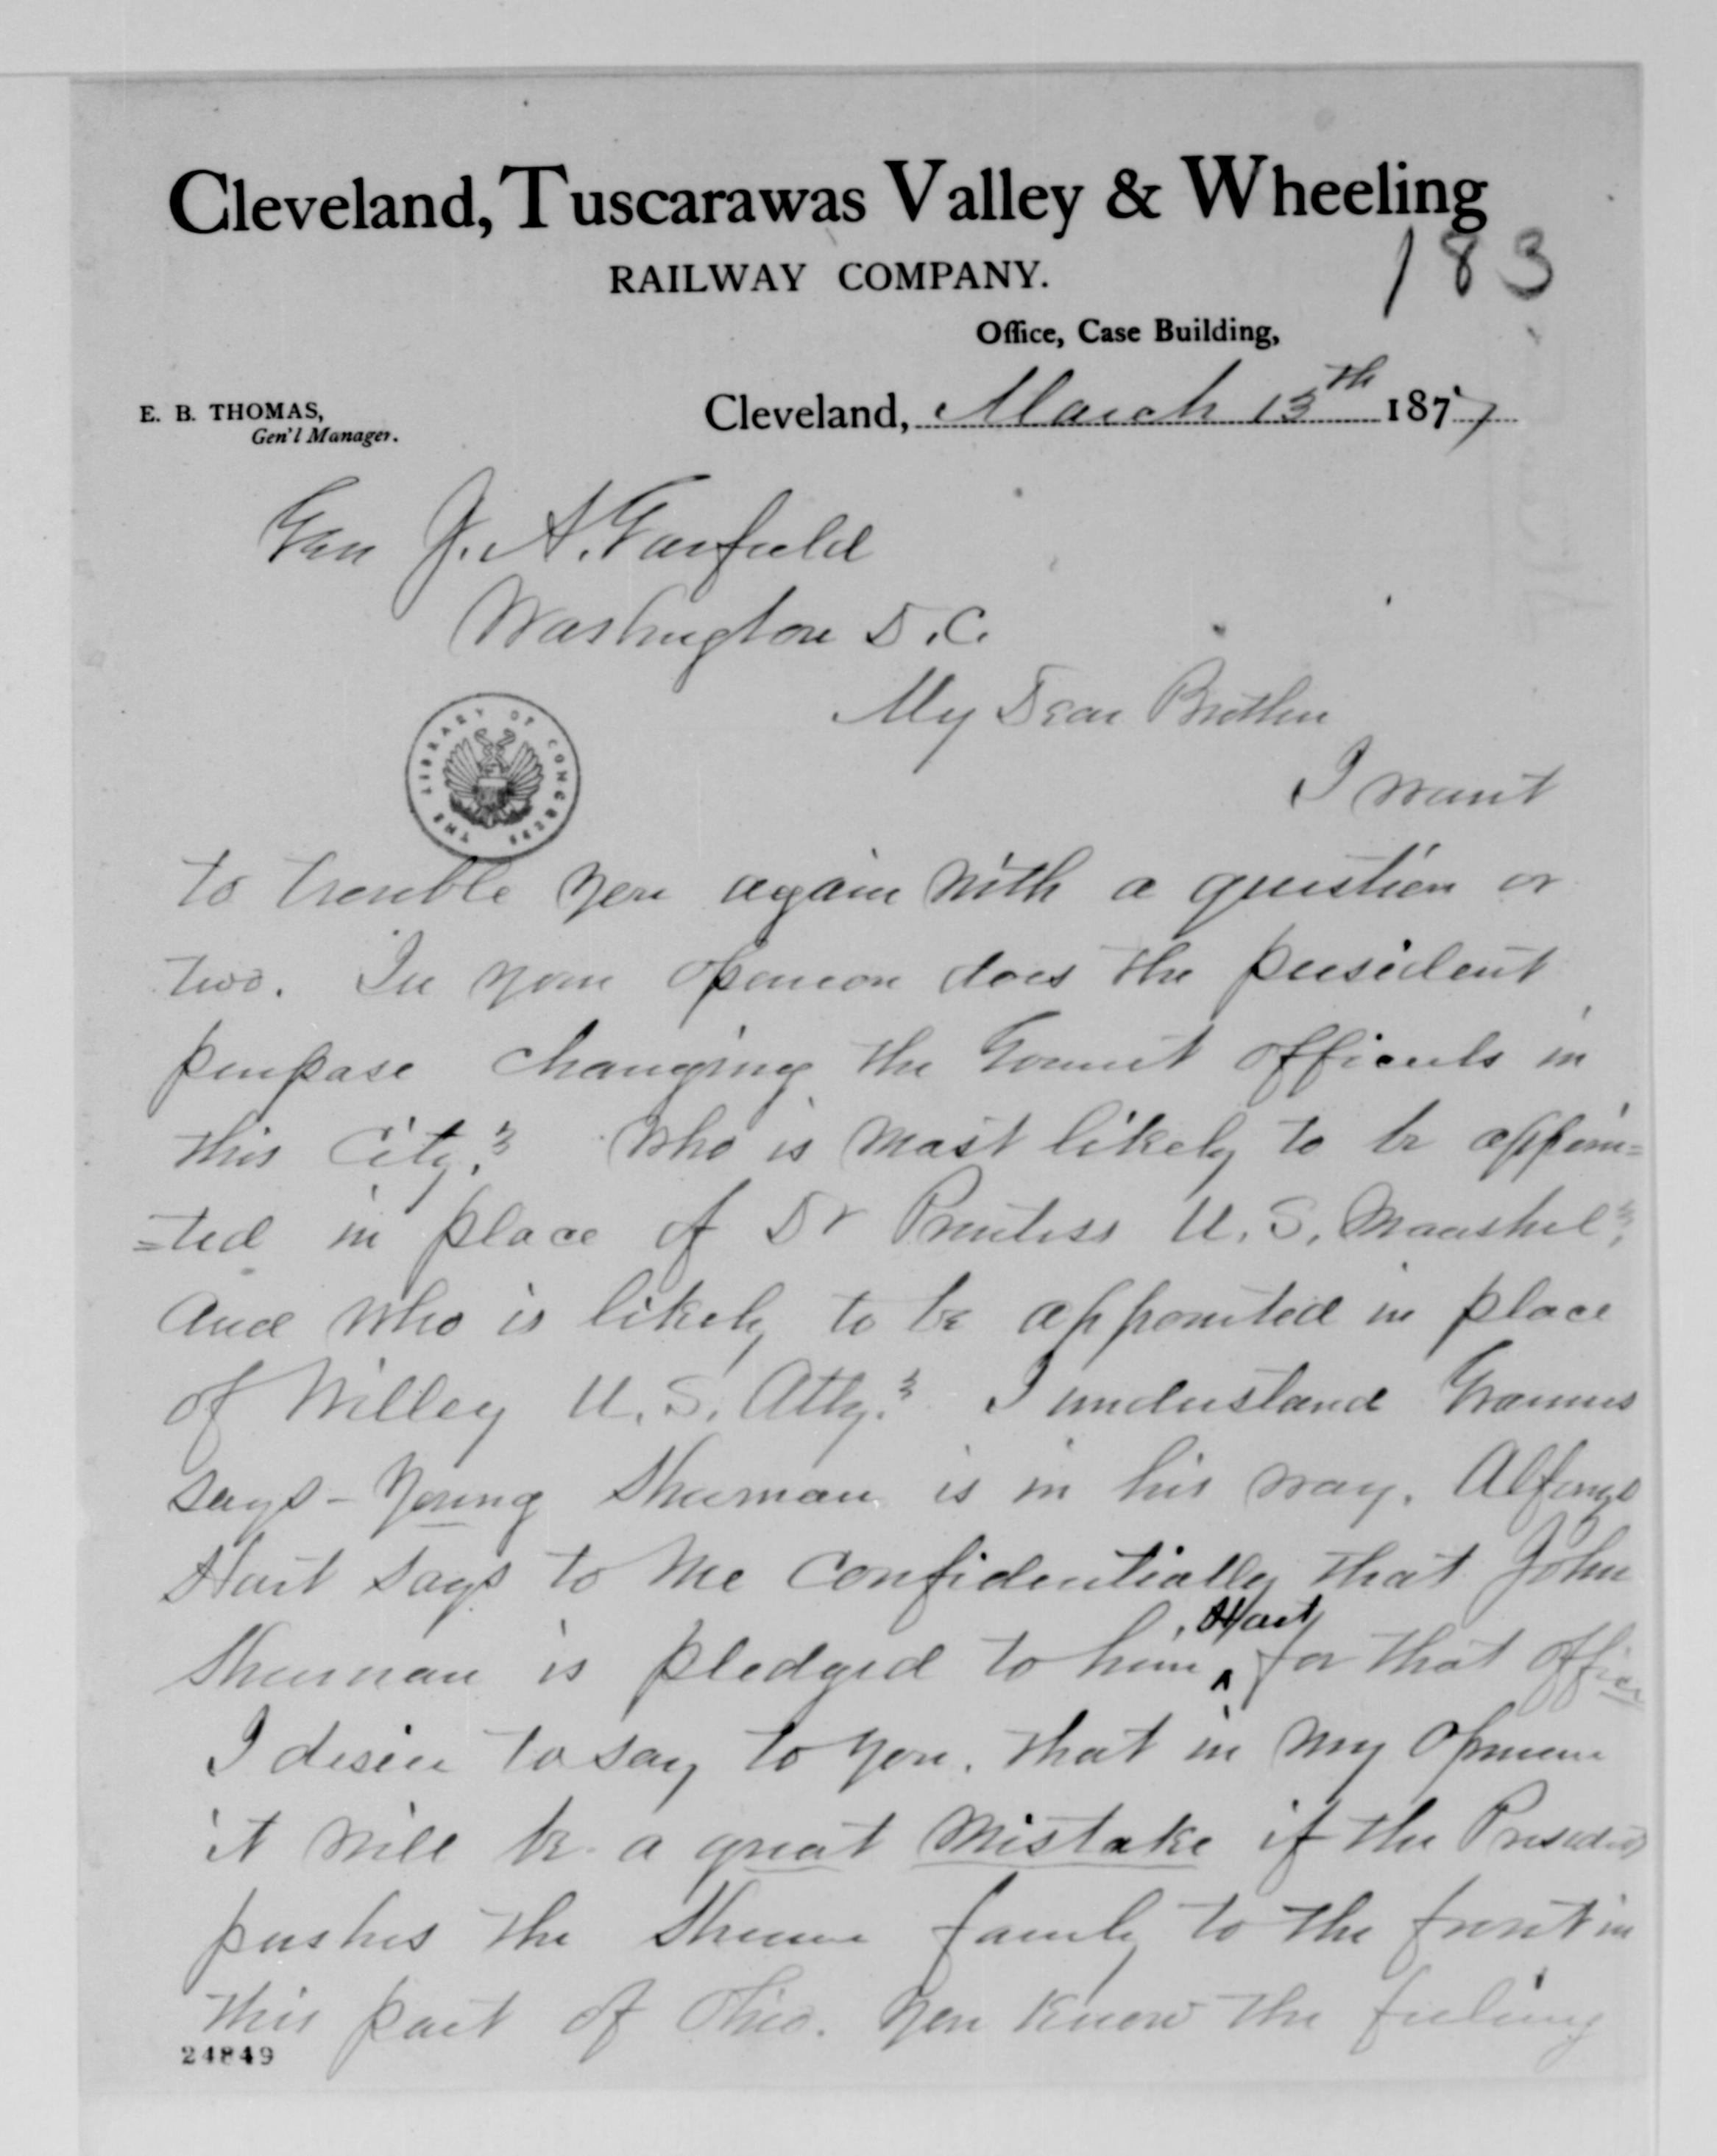 Cleveland, Tuscarawas Valley & Wheeling
183
RAILWAY COMPANY.
Office, Case Building,
E. B. THOMAS,
Gen'l Manager.
Cleveland, March 13th 1877
Gen J. A. Garfield
Washington D.C.
My Dear Brother
THE LIBRARY OF CONGRESS
I want
to trouble you again with a question or
two. In your opinion does the president
purpose changing the Govmt officials in
this City? Who is most likely to be appoin=
=ted in place of Dr Prentiss U.S. Marshal?
And who is likely to be appointed in place
of Willey U.S. Atty? I understand Grannis
says - Young Sherman is in his way. Alfonzo
Hart says to me confidentially that John
Sherman is pledged to him, Hart, for that office
I desire to say to you, that in my opinion
it will be a great mistake if the President
pushes the Sherman family to the front in
this part of Ohio. You know the feeling
24849